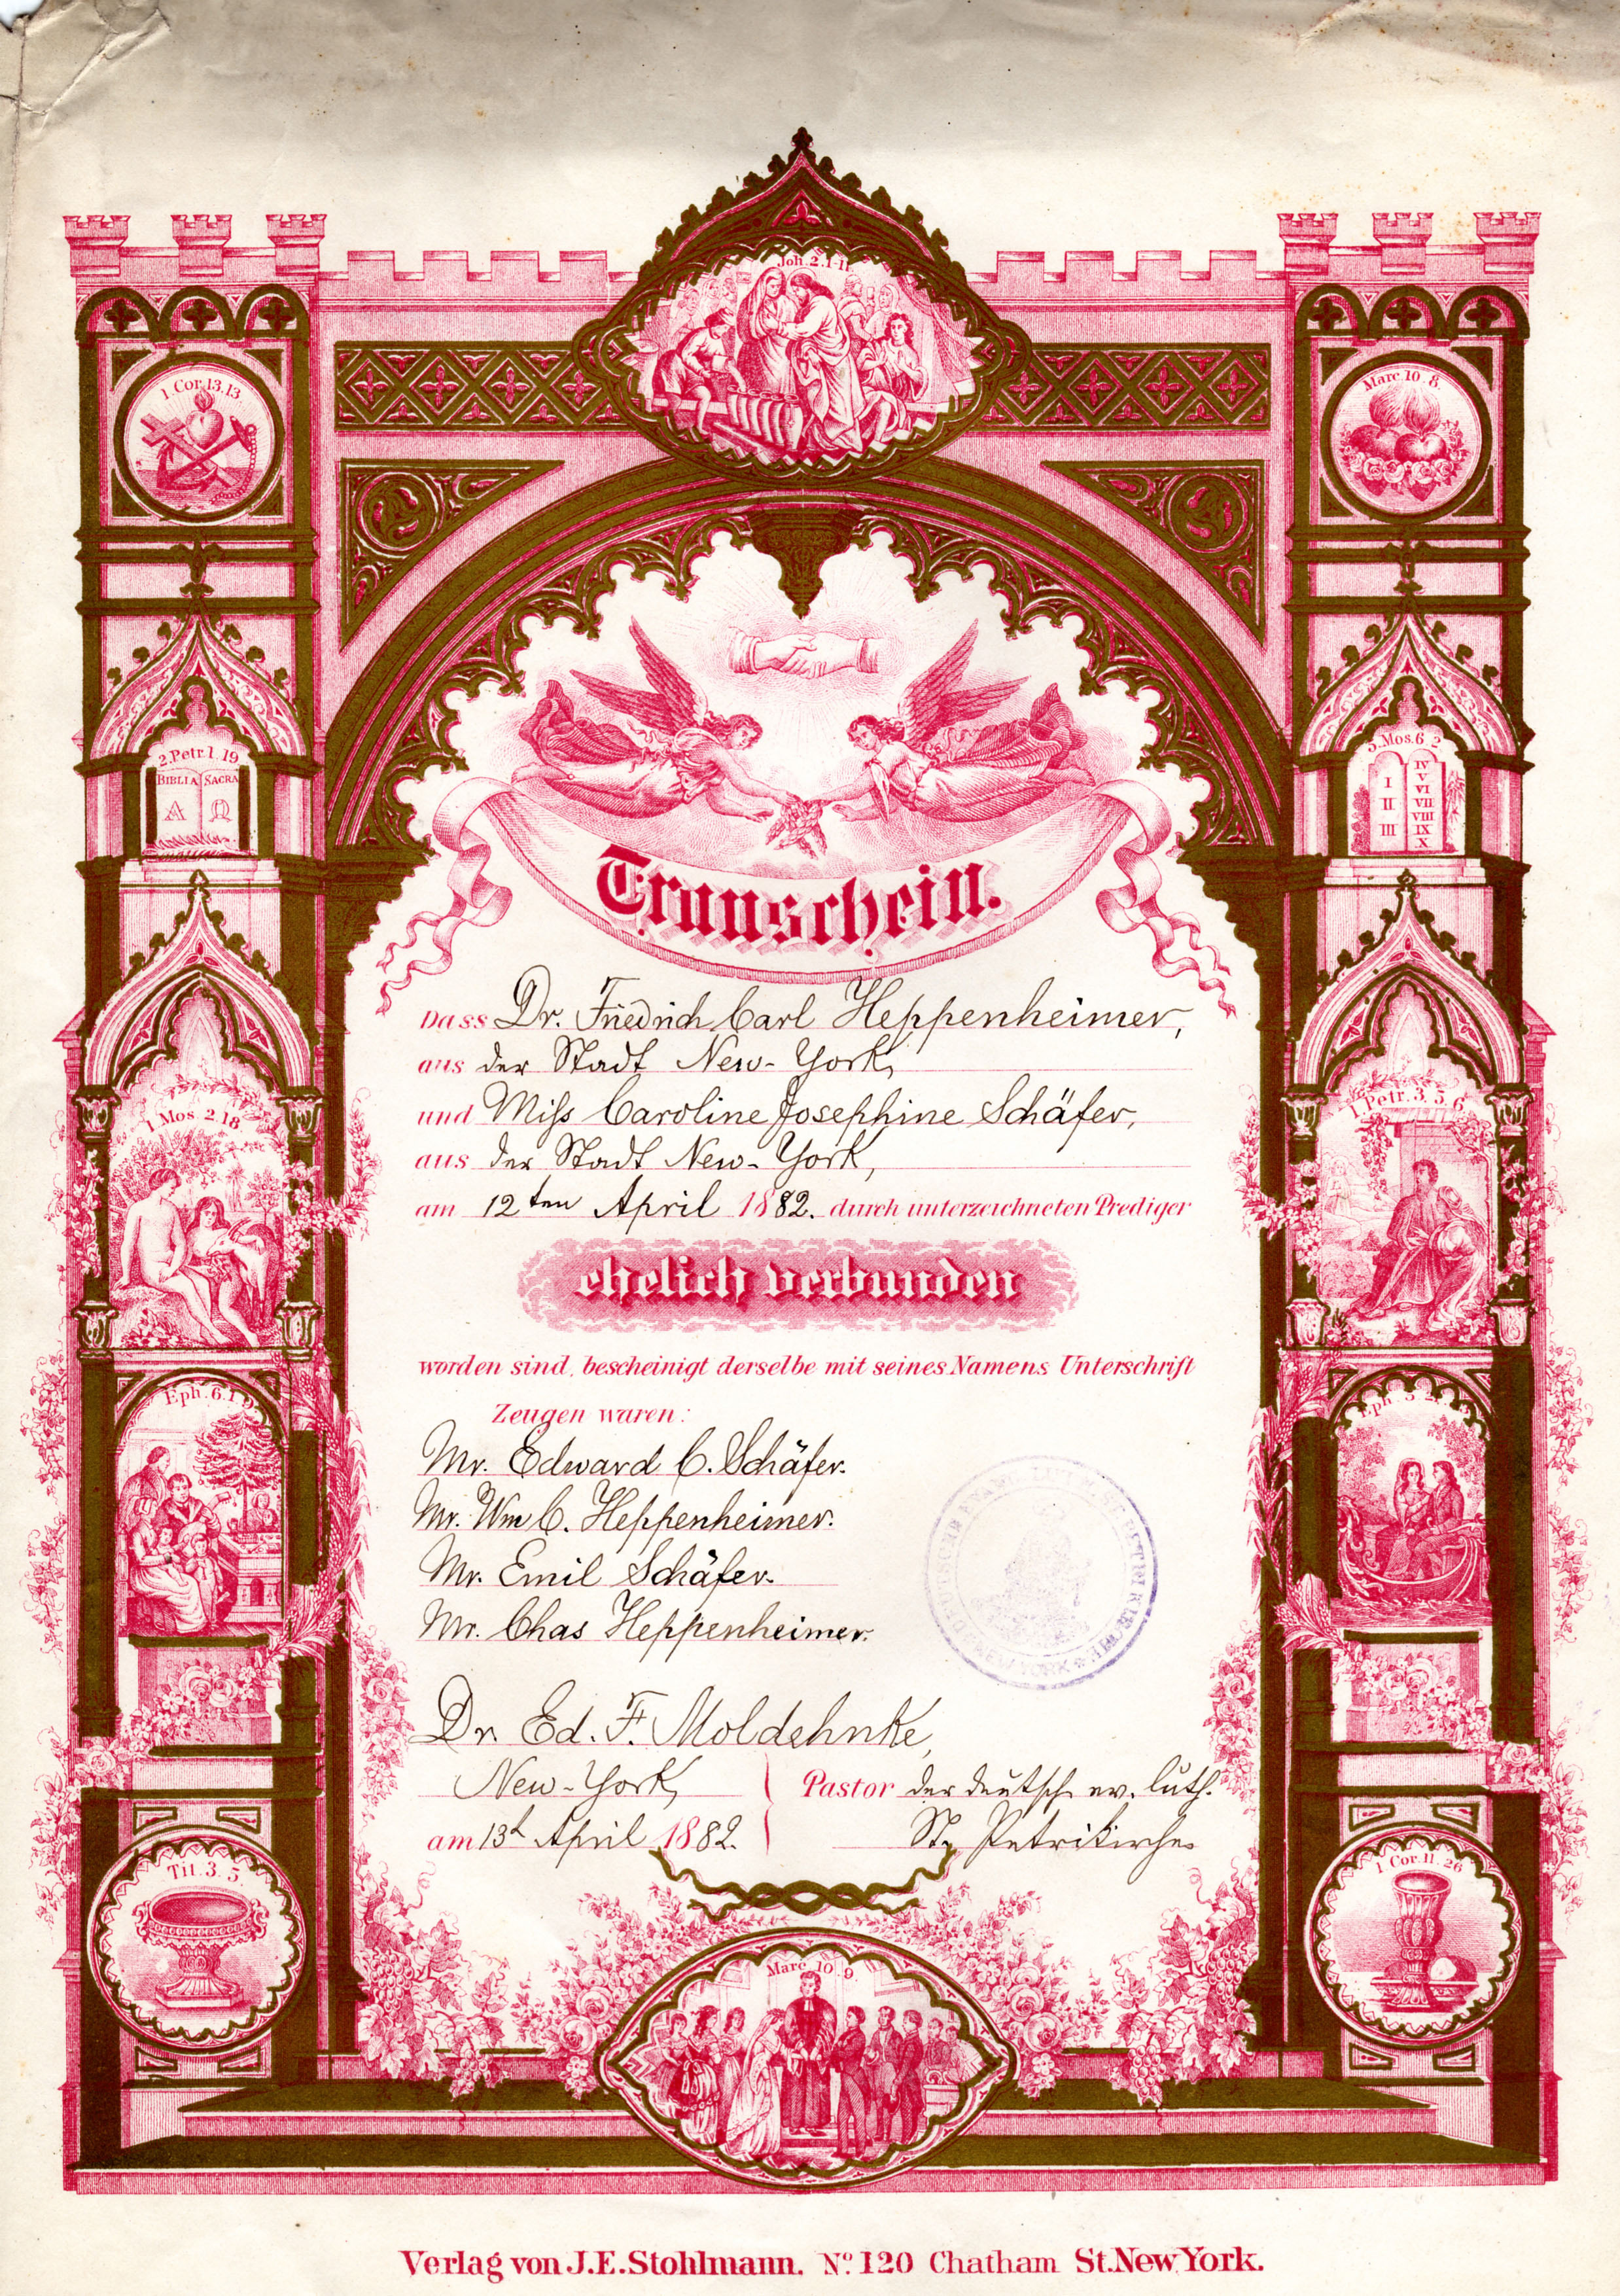 Joh. 2. 1-11
1. Cor. 13. 13.
Marc. 10. 8.
2. Petr. 1. 19
BIBLIA SACRA
A Ω
5. Mos. 6. 2
I II III
IV V VI VII VIII IX X
Trauschein.
Dass Dr. Friedrich Carl Heppenheimer,
aus der Stadt New-York,
und Miss Caroline Josephine Schäfer,
aus der Stadt New-York,
am 12ten April 1882. durch unterzeichneten Prediger
ehelich verbunden
worden sind, bescheinigt derselbe mit seines Namens Unterschrift
Zeugen waren:
Mr. Edward C. Schäfer.
Mr. Wm C. Heppenheimer.
Mr. Emil Schäfer.
Mr. Chas Heppenheimer.
DEUTSCHE EVANG. LUTH. ST. PETRI KIRCHE
NEW YORK
Dr. Ed. F. Moldehnke,
New-York, Pastor der deutsch. ev. luth.
am 13t April 1882. St. Petrikirche
1. Mos. 2. 18
1. Petr. 3. 5. 6
Eph. 6. 1
Eph. 5
Tit. 3. 5.
1. Cor. 11. 26
Marc. 10. 9.
Verlag von J.E. Stohlmann. No. 120 Chatham St. New York.